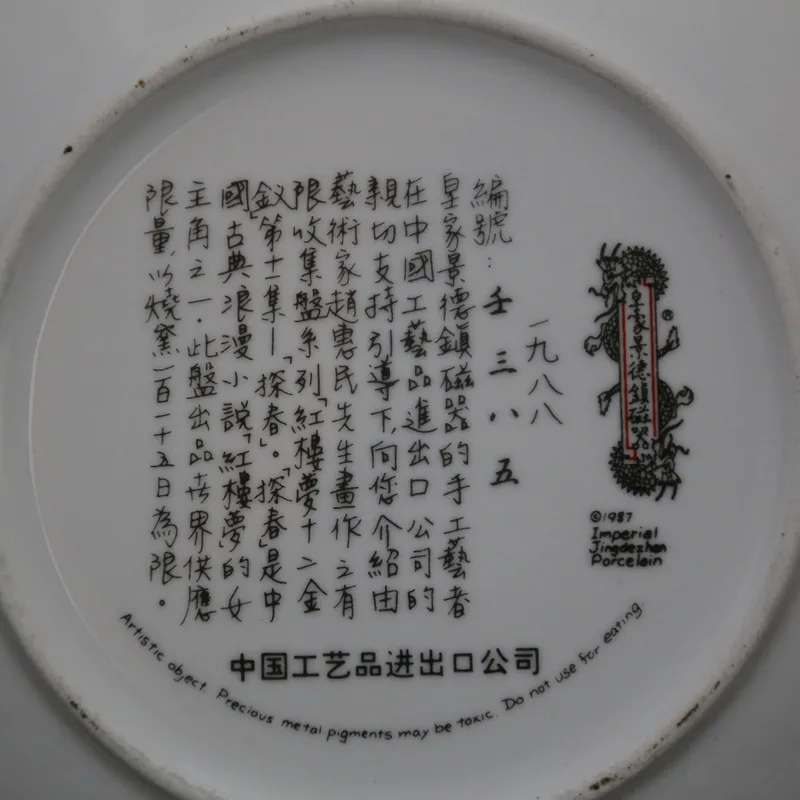 皇家景德鎮磁器
®
©1987
Imperial
Jingdezhen
Porcelain
一九八八
編號：壬三八五
皇家景德鎮磁器的手工藝者
在中國工藝品進出口公司的
親切支持引導下,向您介紹由
藝術家趙惠民先生畫作之有
限收集盤系列「紅樓夢十二金
釵」第十一集—「探春」。「探春」是中
國古典浪漫小說「紅樓夢」的女
主角之一.此盤出品世界供應
限量,以燒窯一百一十五日為限。
中国工艺品进出口公司
Artistic object. Precious metal pigments may be toxic. Do not use for eating.